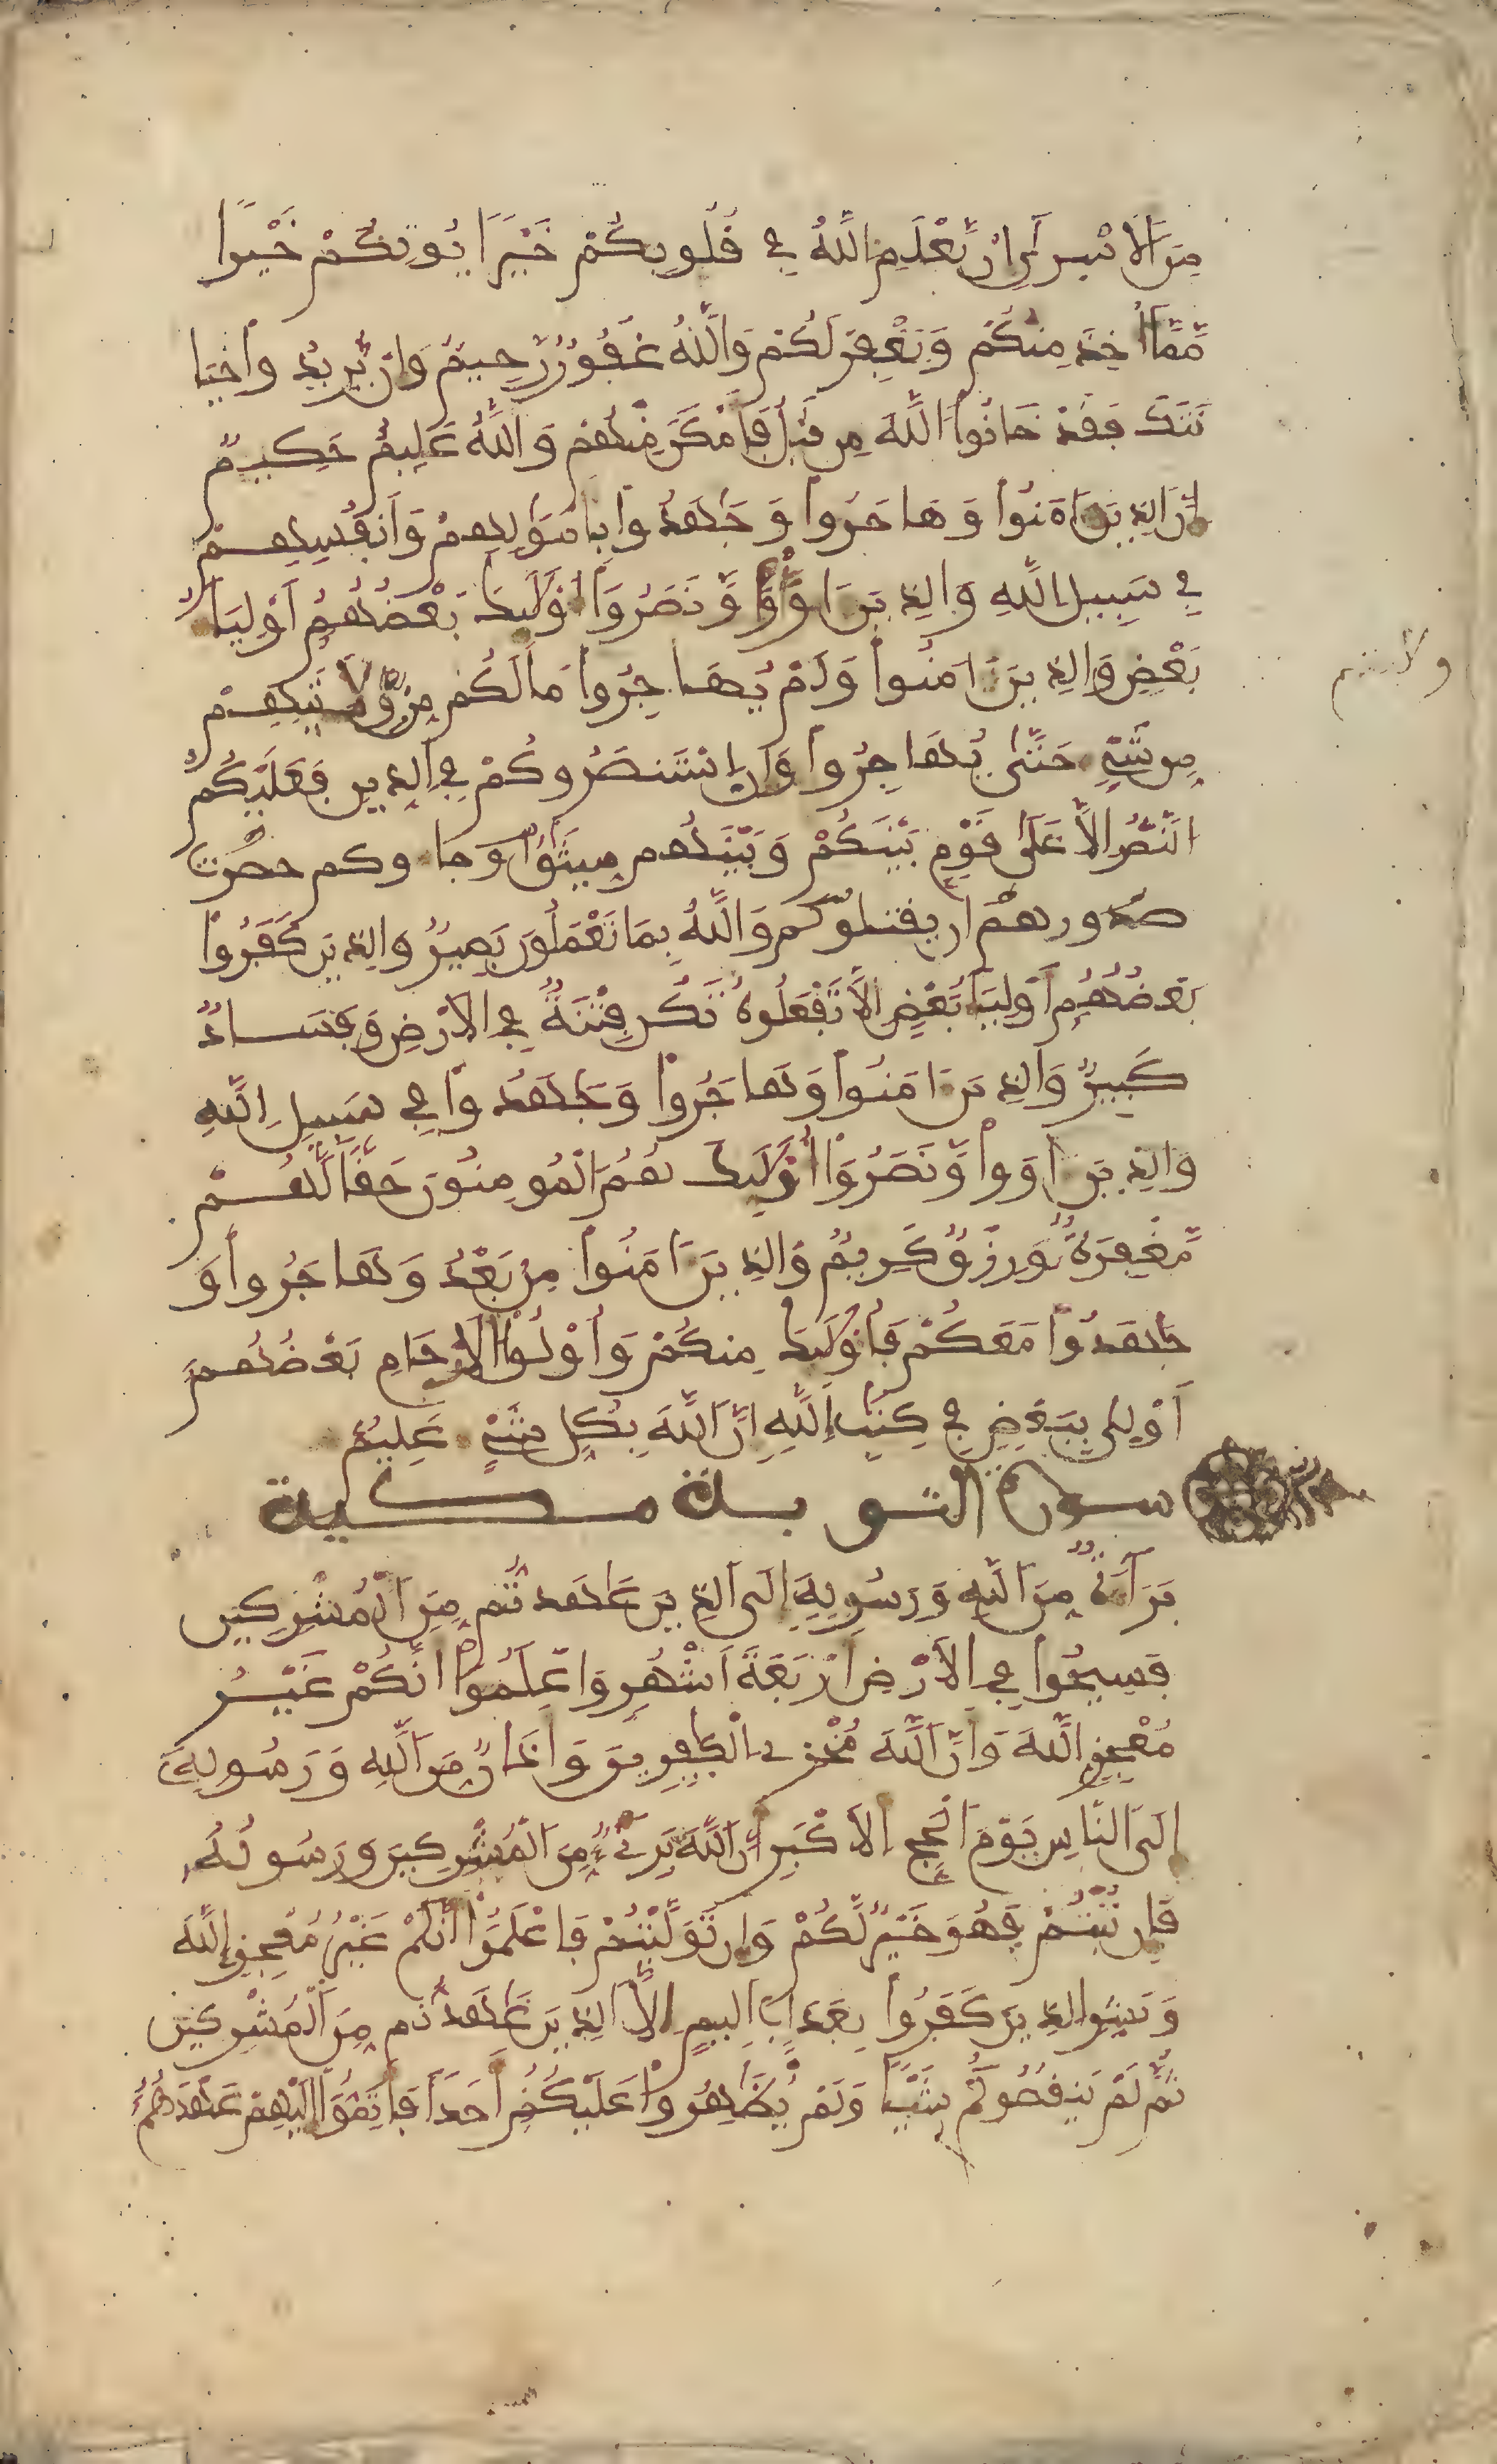 مِنَ الَاسْرَىٰ إِنْ يَّعْلَمِ اللَّهُ فِي قُلُوبِكُمْ خَيْرًا يُوتِكُمْ خَيْرًا
مِّمَّا أُخِذَ مِنكُمْ وَيَغْفِرْ لَكُمْ وَاللَّهُ غَفُورٌ رَّحِيمٌ وَإِنْ يُّرِيدُوا خِيَا
نَتَكَ فَقَدْ خَانُوا اللَّهَ مِن قَبْلُ فَأَمْكَنَ مِنْهُمْ وَاللَّهُ عَلِيمٌ حَكِيمٌ
إِنَّ الذِينَ ءَامَنُوا وَهَاجَرُوا وَجَٰهَدُوا بِأَمْوَٰلِهِمْ وَأَنفُسِهِمْ
فِي سَبِيلِ اللَّهِ وَالذِينَ ءَاوَوا وَّنَصَرُوا أُوْلَٰئِكَ بَعْضُهُمُ أَوْلِيَاءُ
بَعْضٍ وَالذِينَ ءَامَنُوا وَلَمْ يُهَاجِرُوا مَا لَكُم مِّنْ وَّلَٰيَتِهِم
مِّن شَيْءٍ حَتَّىٰ يُهَاجِرُوا وَإِنِ اسْتَنصَرُوكُمْ فِي الدِّينِ فَعَلَيْكُمُ
النَّصْرُ إِلَّا عَلَىٰ قَوْمٍ بَيْنَكُمْ وَبَيْنَهُم مِّيثَٰقٌ وجاوكم حصرت
صدورهم أن يقتلوكم وَاللَّهُ بِمَا تَعْمَلُونَ بَصِيرٌ وَالذِينَ كَفَرُوا
بَعْضُهُمُ أَوْلِيَاءُ بَعْضٍ إِلَّا تَفْعَلُوهُ تَكُن فِتْنَةٌ فِي الَارْضِ وَفَسَادٌ
كَبِيرٌ وَالذِينَ ءَامَنُوا وَهَاجَرُوا وَجَٰهَدُوا فِي سَبِيلِ اللَّهِ
وَالذِينَ ءَاوَوا وَّنَصَرُوا أُوْلَٰئِكَ هُمُ الْمُومِنُونَ حَقًّا لَّهُم
مَّغْفِرَةٌ وَرِزْقٌ كَرِيمٌ وَالذِينَ ءَامَنُوا مِنْ بَعْدُ وَهَاجَرُوا وَ
جَٰهَدُوا مَعَكُمْ فَأُوْلَٰئِكَ مِنكُمْ وَأُوْلُوا الَارْحَامِ بَعْضُهُمُ
أَوْلَىٰ بِبَعْضٍ فِي كِتَٰبِ اللَّهِ إِنَّ اللَّهَ بِكُلِّ شَيْءٍ عَلِيمٌ
سورة التوبة مكية
بَرَاءَةٌ مِّنَ اللَّهِ وَرَسُولِهِ إِلَى الذِينَ عَٰهَدتُّم مِّنَ الْمُشْرِكِينَ
فَسِيحُوا فِي الَارْضِ أَرْبَعَةَ أَشْهُرٍ وَاعْلَمُوا أَنَّكُمْ غَيْرُ
مُعْجِزِي اللَّهِ وَأَنَّ اللَّهَ مُخْزِي الْكَٰفِرِينَ وَأَذَانٌ مِّنَ اللَّهِ وَرَسُولِهِ
إِلَى النَّاسِ يَوْمَ الْحَجِّ الَاكْبَرِ أَنَّ اللَّهَ بَرِيءٌ مِّنَ الْمُشْرِكِينَ وَرَسُولُهُ
فَإِن تُبْتُمْ فَهُوَ خَيْرٌ لَّكُمْ وَإِن تَوَلَّيْتُمْ فَاعْلَمُوا أَنَّكُمْ غَيْرُ مُعْجِزِي اللَّهِ
وَبَشِّرِ الذِينَ كَفَرُوا بِعَذَابٍ أَلِيمٍ إِلَّا الذِينَ عَٰهَدتُّم مِّنَ الْمُشْرِكِينَ
ثُمَّ لَمْ يَنقُصُوكُمْ شَيْئًا وَلَمْ يُظَٰهِرُوا عَلَيْكُمُ أَحَدًا فَأَتِمُّوا إِلَيْهِمْ عَهْدَهُمُ